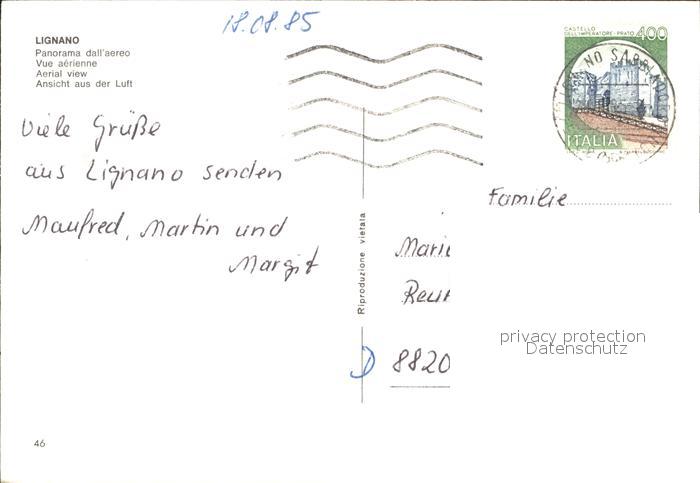 18.08.85
LIGNANO
Panorama dall'aereo
Vue aérienne
Aerial view
Ansicht aus der Luft
CASTELLO
DELL'IMPERATORE - PRATO 400
ITALIA
Viele Grüße
aus Lignano senden
Manfred, Martin und
Margit
Riproduzione vietata
Familie
D 8820
privacy protection
Datenschutz
46